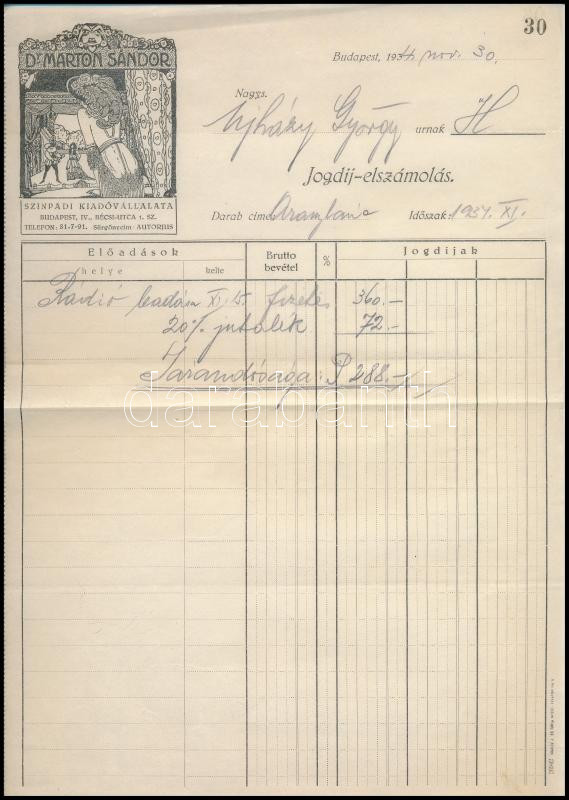 30
Dr. MARTON SÁNDOR
SZINPADI KIADÓVÁLLALATA
BUDAPEST, IV., BÉCSI-UTCA 1. SZ.
TELEFON: 81-7-91. Sürgönycim: AUTORJUS
Budapest, 1934 nov. 30.
Nagys.
Ujházy György urnak H
Jogdij-elszámolás.
Darab cime: Időszak: 1934. XI.
Előadások Brutto bevétel % Jogdijak
helye kelte
Rádió leadás XI. 15. fizetés 360.–
20% jutalék 72.–
Járandósága: P 288.–
darabanth